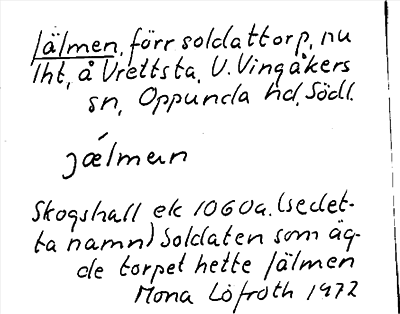 Jälmen, förr soldattorp, nu
lht, å Vrettsta, V. Vingåkers
sn, Oppunda hd, Södl.
jǽlmæn
Skogshall ek 1060a. (se det-
ta namn) Soldaten som äg-
de torpet hette Jälmen
Mona Löfroth 1972